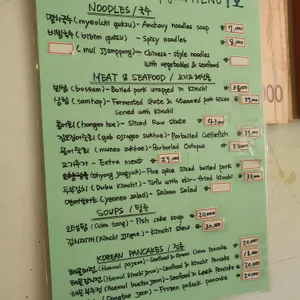 MENU
NOODLES / 국수
멸치국수 (myeolchi guksu) - Anchovy noodles soup 7,000
비빔국수 (bibim guksu) - Spicy noodles 8,000
(mul jjamppong) - Chinese - style noodles
with vegetables & seafood
MEAT & SEAFOOD /
보쌈 (bossam) - Boiled pork wrapped in kimchi
삼합 (samhap) - Fermented skate & steamed pork slices
served with kimchi
홍어회 (hongeo hoe) - Sliced raw skate 43,000
(gab ojingeo sukhoe) - Parboiled Cuttlefish
문어숙회 (muneo sukhoe) - Parboiled Octopus
고기추가 - Extra meat
(ohyang jangyuk) - Five spice sliced boiled pork
두부김치 (Dubu kimchi) - Tofu with stir-fried kimchi
(yeoneo salad) - Salmon Salad
SOUPS /
오뎅탕 (Odeng tang) - Fish cake soup 20,000
김치찌개 (Kimchi jjigae) - Kimchi stew 30,000
KOREAN PANCAKES /
- Seafood & Green Onion Pancake 20,000
- Seafood & Kimchi Pancake 18,000
- Seafood & Leek Pancake 20,000
- Frozen pollack pancake 20,000